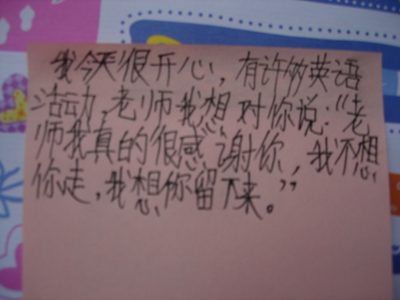 我今天很开心，有许多英语
活动，老师我想对你说：“老
师我真的很感谢你，我不想
你走，我想你留下来。”